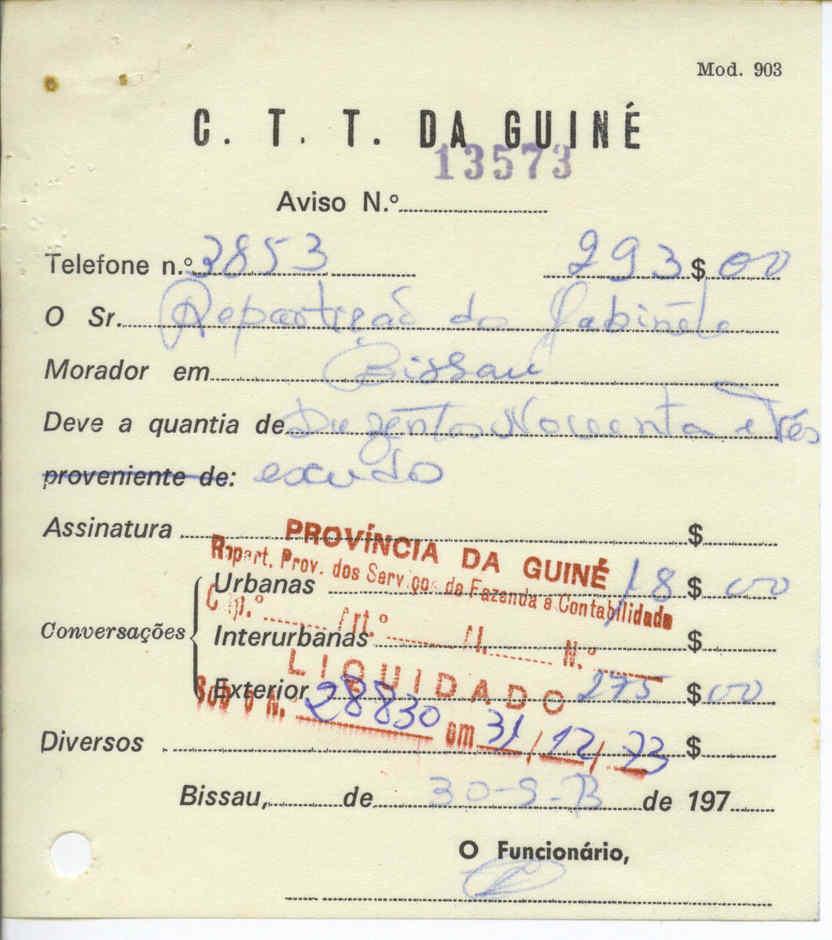 Mod. 903
C. T. T. DA GUINÉ
13573
Aviso N.º
Telefone n.º 3853 293 $ 00
O Sr. Repartição do Gabinête
Morador em Bissau
Deve a quantia de Duzentos Noventa e Três
proveniente de: escudo
Assinatura $
PROVÍNCIA DA GUINÉ
Repart. Prov. dos Serviços de Fazenda e Contabilidade
Urbanas 18 $ 00
Cap.º Art.º N.º
Conversações
Interurbanas $
LIQUIDADO
Exterior 275 $ 00
SOB O N. 28830 em 31/12/73
Diversos $
Bissau, de 30-9-73 de 197
O Funcionário,